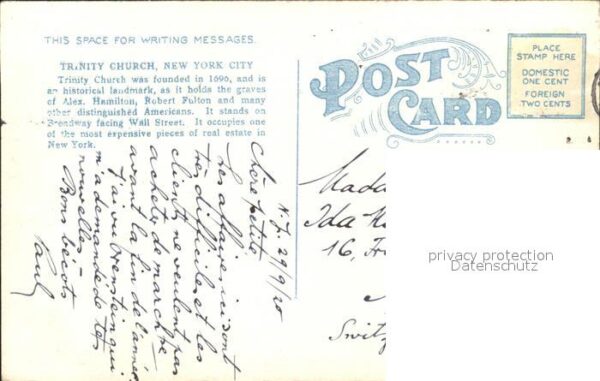 THIS SPACE FOR WRITING MESSAGES.
TRINITY CHURCH, NEW YORK CITY
Trinity Church was founded in 1696, and is
an historical landmark, as it holds the graves
of Alex. Hamilton, Robert Fulton and many
other distinguished Americans. It stands on
Broadway facing Wall Street. It occupies one
of the most expensive pieces of real estate in
New York.
N.Y. 29/9/20
Chère petite,
Les affaires ici sont
très difficiles et les
clients ne veulent pas
acheter de marche
avant la fin de l'année
J'ai vu qui
m'a demandé de tes
nouvelles. —
Bons becots
Paul
POST
CARD
PLACE
STAMP HERE
DOMESTIC
ONE CENT
FOREIGN
TWO CENTS
Mada
Ida
16,
Switz
privacy protection
Datenschutz